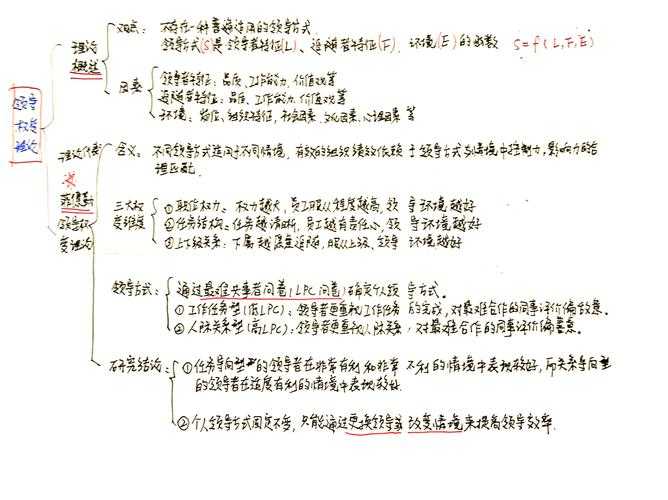 领导
权变
理论
理论
概述
观点：不存在一种普遍适用的领导方式.
领导方式(S)是领导者特征(L)、追随者特征(F)、环境(E)的函数 S=f(L,F,E)
因素
领导者特征：品质、工作能力、价值观等
追随者特征：品质、工作能力、价值观等
环境：岗位、组织特征、社会因素、文化因素、心理因素等
理论代表
菲德勒
领导权
变理论
含义：不同领导方式适用于不同情境，有效的组织绩效依赖于领导方式与情境中控制力，影响力的合
理匹配.
三大权
变维度
①职位权力：权力越大，员工服从程度越高，领导环境越好
②任务结构：任务越清晰，员工越有责任心，领导环境越好
③上下级关系：下属越愿意追随，服从上级，领导环境越好
领导方式：通过最难共事者问卷(LPC问卷)确定个人领导方式。
①工作任务型(低LPC)：领导者更重视工作任务的完成，对最难合作的同事评价偏敌意.
②人际关系型(高LPC)：领导者更重视人际关系，对最难合作的同事评价偏善意.
研究结论：①任务导向型的领导者在非常有利和非常不利的情境中表现较好，而关系导向型
的领导者在适度有利的情境中表现较好.
②个人领导方式固定不变，只能通过更换领导或改变情境来提高领导效率.